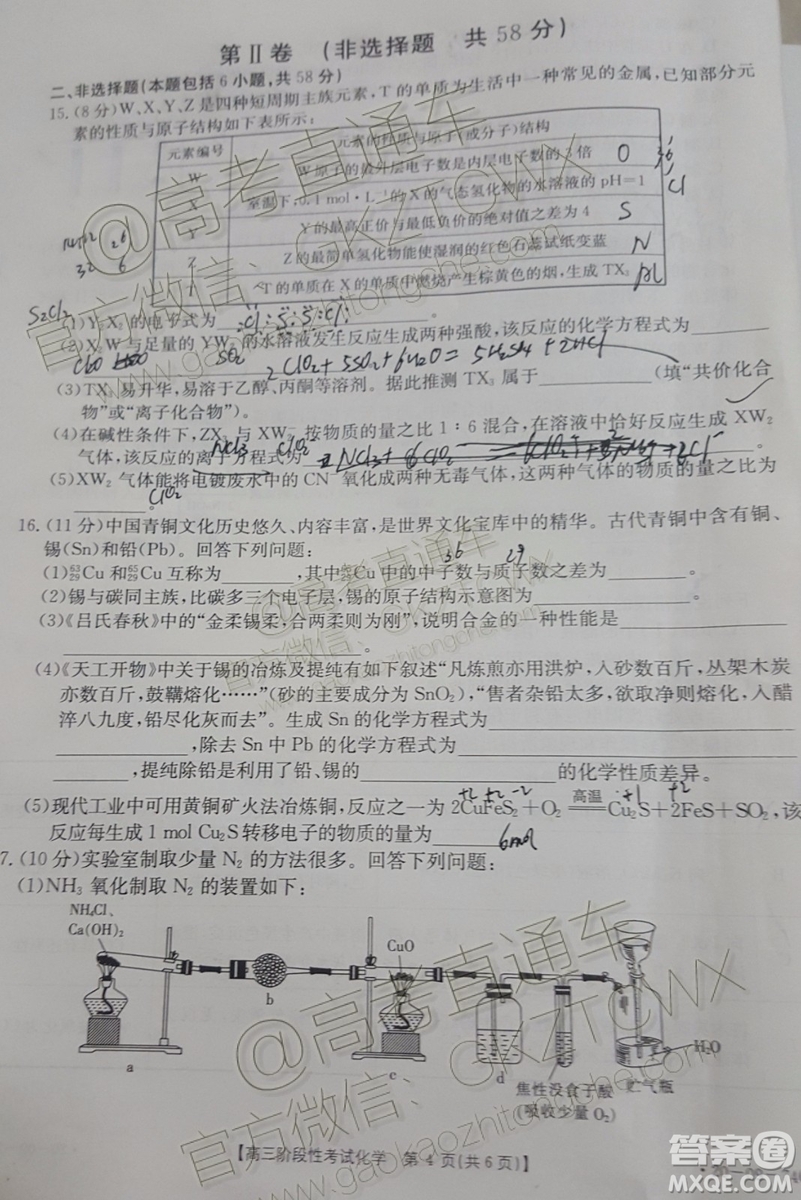 第Ⅱ卷 (非选择题 共58分)
二、非选择题(本题包括6小题,共58分)
15.(8分)W、X、Y、Z是四种短周期主族元素,T的单质为生活中一种常见的金属,已知部分元
素的性质与原子结构如下表所示:
元素编号 元素的性质与原子(或分子)结构
W原子的最外层电子数是内层电子数的3倍 O
室温下,0.1 mol·L⁻¹的X的气态氢化物的水溶液的pH=1 Cl
Y的最高正价与最低负价的绝对值之差为4 S
Z的最简单氢化物能使湿润的红色石蕊试纸变蓝 N
T的单质在X的单质中燃烧产生棕黄色的烟,生成TX₃
S₂Cl₂
(1)Y₂X₂的电子式为
(2)X₂W与足量的YW₂的水溶液发生反应生成两种强酸,该反应的化学方程式为
SO₂
(3)TX₃易升华,易溶于乙醇、丙酮等溶剂。据此推测TX₃属于 (填“共价化合
物”或“离子化合物”)。
(4)在碱性条件下,ZX₃与XW₂⁻按物质的量之比1∶6混合,在溶液中恰好反应生成XW₂
气体,该反应的离子方程式为 。
(5)XW₂气体能将电镀废水中的CN⁻氧化成两种无毒气体,这两种气体的物质的量之比为
。
ClO₂
16.(11分)中国青铜文化历史悠久、内容丰富,是世界文化宝库中的精华。古代青铜中含有铜、
锡(Sn)和铅(Pb)。回答下列问题:
36 29
(1)⁶³₂₉Cu和⁶⁵₂₉Cu互称为 ,其中⁶⁵₂₉Cu中的中子数与质子数之差为 。
(2)锡与碳同主族,比碳多三个电子层,锡的原子结构示意图为 。
(3)《吕氏春秋》中的“金柔锡柔,合两柔则为刚”,说明合金的一种性能是
。
(4)《天工开物》中关于锡的冶炼及提纯有如下叙述“凡炼煎亦用洪炉,入砂数百斤,丛架木炭
亦数百斤,鼓鞲熔化……”(砂的主要成分为SnO₂),“售者杂铅太多,欲取净则熔化,入醋
淬八九度,铅尽化灰而去”。生成Sn的化学方程式为
,除去Sn中Pb的化学方程式为
,提纯除铅是利用了铅、锡的 的化学性质差异。
+2 +2 -2 +1 +2
(5)现代工业中可用黄铜矿火法冶炼铜,反应之一为2CuFeS₂+O₂ 高温 Cu₂S+2FeS+SO₂,该
反应每生成1 mol Cu₂S转移电子的物质的量为 6mol
7.(10分)实验室制取少量N₂的方法很多。回答下列问题:
(1)NH₃氧化制取N₂的装置如下:
NH₄Cl、
Ca(OH)₂
CuO
b
H₂O
a
c
d
焦性没食子酸
(吸收少量O₂)
贮气瓶
【高三阶段性考试化学 第4页(共6页)】
@高考直通车
官方微信:GKZTCWX
www.gaokaozhitongche.com
@高考直通车
官方微信:GKZTCWX
www.gaokaozhitongche.com
@高考直通车
官方微信:GKZTCWX
www.gaokaozhitongche.com
答案圈
MXQE.COM